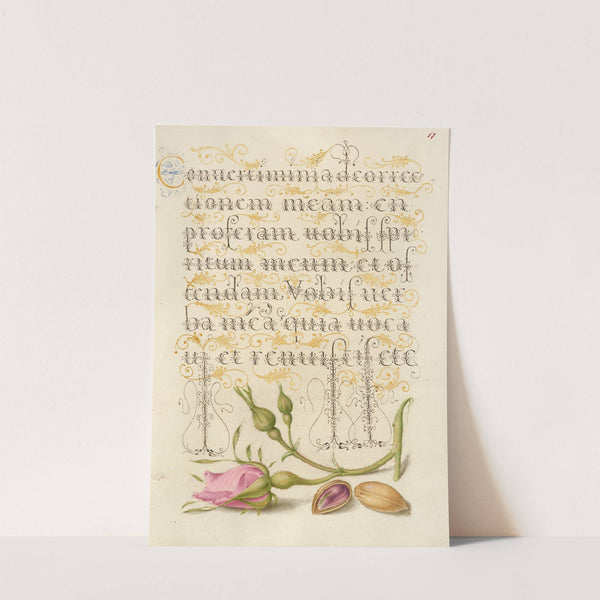 Conuertimini ad correc
tionem meam: en
proferam uobis spi
ritum meum: et os
tendam Vobis uer
ba mea, quia uoca
ui et renuistis etc